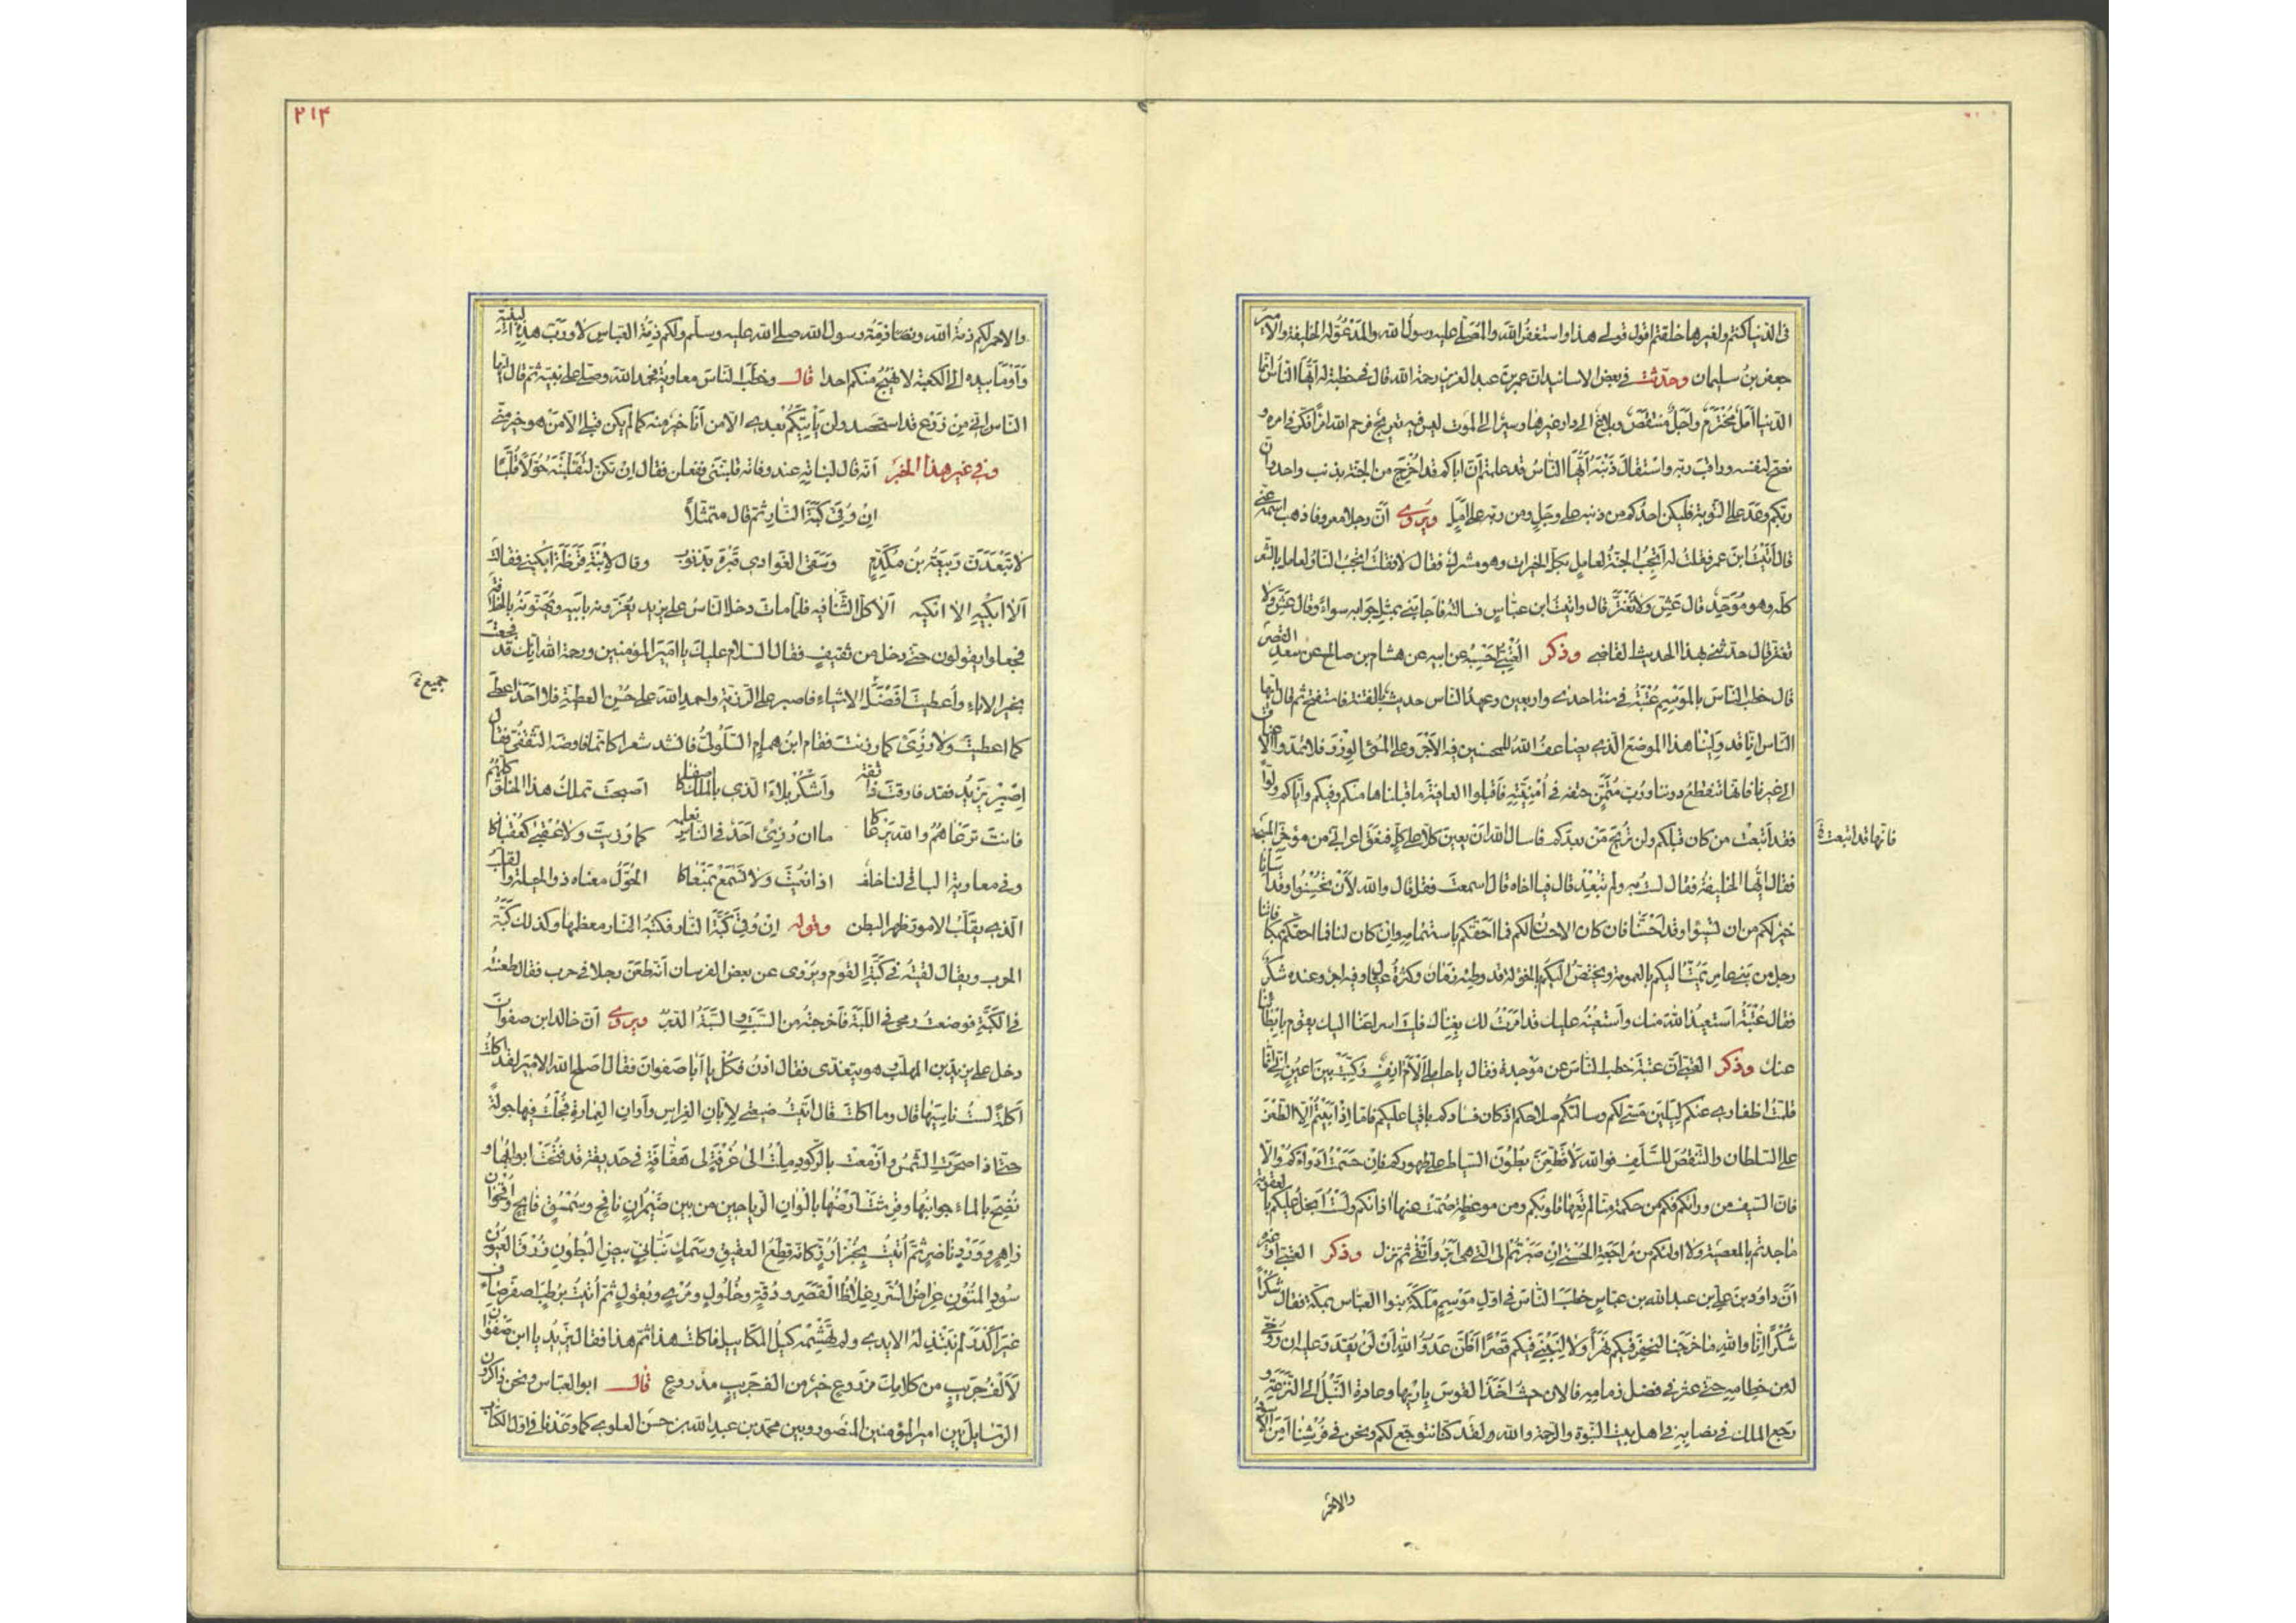 فى الدنيا كنتم ولغيرها خلقتم اقول قولے هذا واستغفر الله والمصلّے عليه رسول الله والمدعوّ له الخليفة والامير
جعفر بن سليمان وحدّثت فى بعض الاسانيد ان عمر بن عبد العزيز رحمة الله قال فى خطبة له ايّها الناس انّما
الدنيا امل مخترم واجل منتقص وبلاغ الى دار غيرها وسير الى الموت ليس فيه تعريج فرحم الله امرأ فكّر فى امره و
نصح لنفسه وراقب ربّه واستقال ذنبه ايّها الناس قد علمتم انّ اباكم قد اخرج من الجنة بذنب واحد وانّ
ربّكم وعد على التوبة فليكن احدكم من ذنبه على وجل ومن ربّه على امل ويروى انّ رجلا معروفا ذهب اسمه عنّى
قال أتيت ابن عمر فقلت له أتجب الجنة لعامل بكلّ الخيرات وهو مشرك فقال لا فقلت أتجب النار لعامل بالشرّ
كلّه وهو موحّد قال عش ولا تغترّ قال واتيت ابن عباس فسالته فاجابنى بمثل جوابه سواء وقال عش ولا
تغترّ قال حدثنى بهذا الحديث القاضى وذكر العتبىّ احسبه عن ابيه عن هشام بن صالح عن سعد القصير
قال خطب الناس بالموسم عتبة فى سنة احدى واربعين وعهد الناس حديث بالفتنة فاستفتح ثم قال ايها
الناس انّا قد ولينا هذا الموضع الذى يضاعف الله للمحسنين فيه الاجر وعلى المسئ الوزر فلا تمدّوا الاعناق
الى غيرنا فانها تنقطع دوننا وربّ متمنّ حتفه فى أمنيته فاقبلوا العافية ما قبلناها منكم وفيكم وايّاكم ولوّا
فقد أتبعت من كان قبلكم ولن تريح من بعدكم فاسال الله ان يعين كلا على كلّ فنعق اعرابى من مؤخر المسجد
فانّها قد اتبعت
فقال ايّها الخليفة فقال لست به ولم تبعد قال فيا اخاه قال اسمعت فقل قال والله لأن تحسنوا وقد اسأنا
خير لكم من ان تسيؤا وقد احسنّا فان كان الاحسان لكم فما احقّكم باستتمامه وان كان لنا فما احقّكم بمكافاتنا
رجل من بنى عامر يمتّ اليكم بالعمومة ويختصّ اليكم بالخؤلة قد وطئه زمان وكثرة عيال وفيه اجر وعنده شكر
فقال عتبة استعيذ الله منك وأستعينه عليك قد امرت لك بغناك فليت اسراعنا اليك يقوم بابطائنا
عنك وذكر العتبى انّ عتبة خطب الناس عن موجدة فقال يا حاملى ألأم انف ركّبت بين اعين انّى انّما
قلّمت اظفارى عنكم ليلين مسّى لكم وسالتكم صلاحكم اذ كان فسادكم باقيا عليكم فامّا اذ ابيتم الّا الطعن
على السلطان والتنقص للسلف فوالله لأقطّعنّ بطون السياط على ظهوركم فان حسمت ادواءكم والّا
فانّ السيف من ورائكم فكم من حكمة منّا لم تعها قلوبكم ومن موعظة صمّت عنها اذانكم ولست ابخل عليكم بالعقوبة
ما جدتم بالمعصية ولا اويئسكم من مراجعة الحسنى ان صرتم الى التى هى ابرّ وأتقى ثم نزل وذكر العتبى او غيره
أنّ داود بن على بن عبد الله بن عباس خطب الناس فى اول موسم ملكه بنوا العباس بمكة فقال شكرا
شكرا انّا والله ما خرجنا لنحفر فيكم نهرا ولا لنبنى فيكم قصرا أظنّ عدوّ الله ان لن يقدر عليه ان روخى
له من خطامه حتى عثر فى فضل زمامه فالان حيث أخذ القوس باريها وعادت النبل الى النزعة و
رجع الملك فى نصابه فى اهل بيت النبوة والرحمة والله ولقد كنّا نتوجع لكم ونحن فى فرشنا امن الاسود
والاحمر
٢١٤
والاحمر لكم ذمة الله وذمة رسول الله صلى الله عليه وسلم ولكم ذمة العباس لا وربّ هذه البنية
وأومأ بيده الى الكعبة لا نهيج منكم احدا قال وخطب الناس معاوية فحمد الله وصلى على نبيّه ثم قال ايّها
الناس انّى من زرع قد استحصد ولن يأتيكم بعدى الا من أنا خير منه كما لم يكن قبلى الا من هو خير منّى
وفى غير هذا الخبر أنّه قال لبناته عند وفاته قلّبننى ففعلن فقال انكنّ لتقلّبنه حوّلا قلّبا
ان وقى كبّة النار ثم قال متمثّلا
لا تبعدنّ ربيعة بن مكدّم وسقى الغوادى قبره بذنوب وقال لابنة قرظة ابكينى فقالت
ألا ابكيه الا ابكيه ألا كلّ الفتى فيه فلما مات دخل الناس على يزيد يعزّونه بابيه ويهنّونه بالخلافة
فجعلوا يقولون حتى دخل رجل من ثقيف فقال السلام عليك يا امير المؤمنين ورحمة الله انّك قد فجعت
بخير الاباء وأعطيت افضل الاشياء فاصبر على الرزية واحمد الله على حسن العطية فلا احد اعطى
جميع
كما اعطيت ولا رزئ كما رزئت فقام ابن همام السلولىّ فانشد شعرا كانّما فاوضه الثقفىّ فقال
اصبر يزيد فقد فارقت ذا ثقة واشكر بلاء الذى بالملك اصفاكا اصبحت تملك هذا الخلق كلّهم
فانت ترعاهم والله يرعاكا ما ان رزئ احد فى الناس نعلمه كما رزيت ولا عقبى كعقباكا
وفى معاوية الباقى لنا خلف اذا نعيت ولا نسمع بمنعاكا الحوّل معناه ذو الحيلة والقلب
الذى يقلّب الامور ظهرا لبطن وقوله ان وقى كبّة النار فكبّة النار معظمها وكذلك كبّة
الحرب ويقال لقيته فى كبّة القوم ويروى عن بعض الفرسان أنه طعن رجلا فى حرب فقال طعنته
فى الكبّة فوضعت رمحى فى اللبّة فأخرجته من السبّة والسبّة الدبر ويروى أنّ خالد ابن صفوان
دخل على يزيد بن المهلب وهو يتغدى فقال ادن فكل يا أبا صفوان فقال اصلح الله الامير لقد اكلت
أكلة لست ناسيها قال وما اكلت قال اتيت ضيعتى لإبّان الغراس وأوان العمارة فجلت فيها جولة
حتى اذا صحرت الشمس وازمعت بالركود ملت الى غرفة لى هفّافة فى حديقة قد فتحت ابوابها و
نضح بالماء جوانبها وفرشت أرضها بالوان الرياحين من بين ضيمران نافح وسمسق فايح واقحوان
زاهر وورد ناضر ثم أتيت بخبز أرزّ كانّه قطع العقيق وسمك بنانىّ بيض البطون زرق العيون
سود المتون عراض السرر غلاظ القصر ودقّة وخلول ومرى وبقول ثم أتيت برطب اصفر صاف
غير اكدر لم تبتذله الايدى ولم تهشمه كيل المكاييل فاكلت هذا ثم هذا فقال يزيد يا ابن صفوان
لألف جريب من كلامك مزروع خير من الف جريب مذروع قال ابو العباس ونحن ذاكرون
الرسايل بين امير المؤمنين المنصور وبين محمد بن عبد الله بن حسن العلوى كما وعدنا فى اول الكتاب